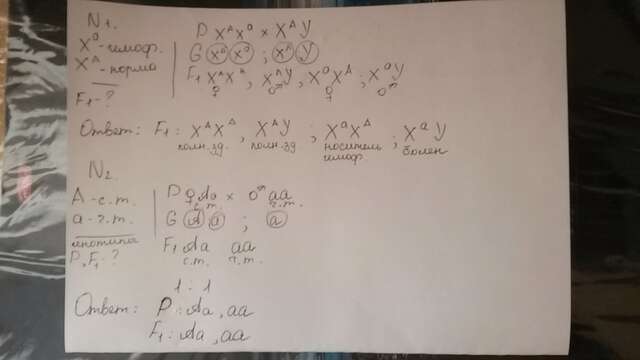 N1.
Xᵃ-гемоф.
Xᴬ-норма
F₁-?
P XᴬXᵃ × XᴬY
G Xᴬ Xᵃ ; Xᴬ Y
F₁ XᴬXᴬ, XᴬY, XᵃXᴬ; XᵃY
♀ ♂ ♀ ♂
Ответ: F₁: XᴬXᴬ, XᴬY ; XᵃXᴬ ; XᵃY
полн.зд. полн.зд носитель болен
гемоф.
N2.
A-с.т.
a-ч.т.
P, F₁-?
P ♀Aa × ♂aa
с.т. ч.т.
G A a ; a
F₁ Aa aa
с.т. ч.т.
1 : 1
Ответ: P: Aa, aa
F₁: Aa, aa